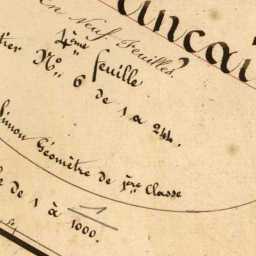 ançai
en Neuf Feuilles.
4ème feuille
N° 6 de 1 à 244.
Simon Géomètre de 1ère Classe
de 1 à 1/1000.